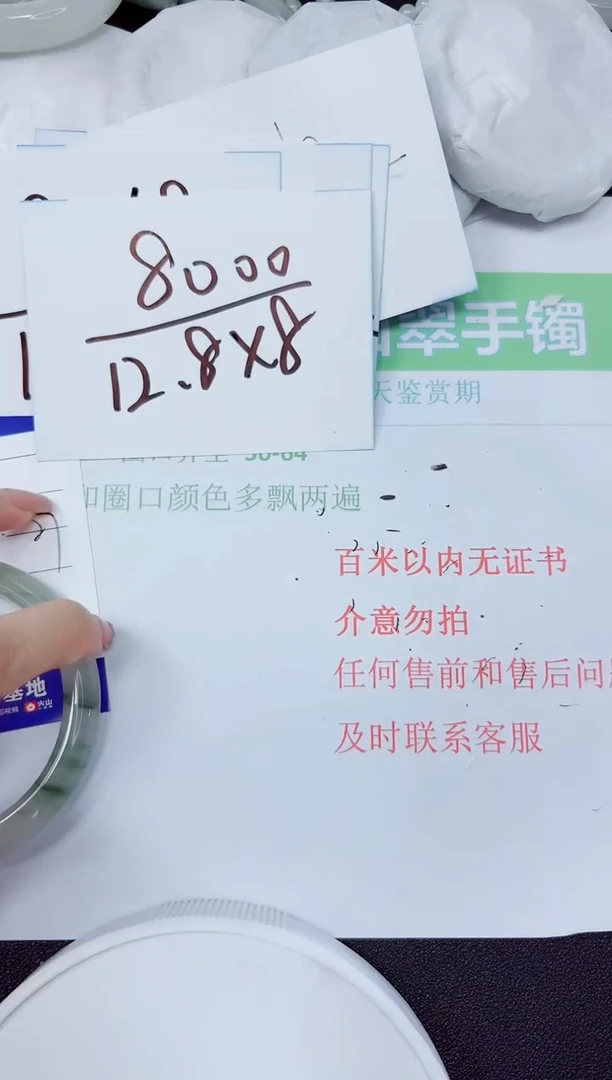 8000
12.8x8
翠手镯
天鉴赏期
50-64
圈口颜色多飘两遍
百米以内无证书
介意勿拍
任何售前和售后问
及时联系客服
基地
火山